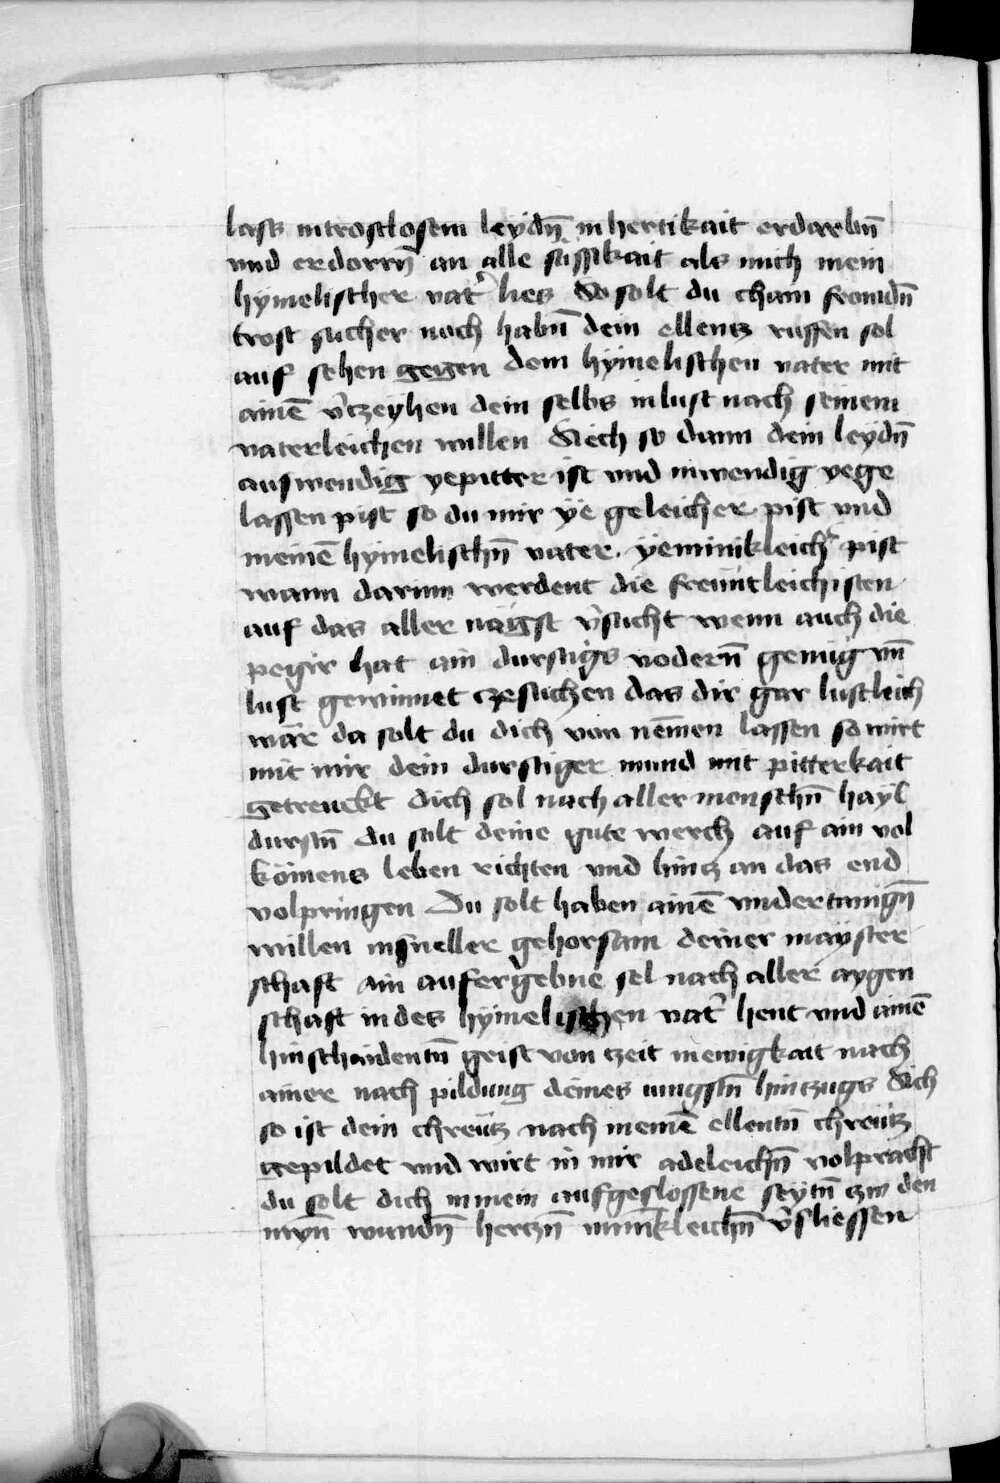 last in trostlosem leydn̄ in hertikait erdarbn̄
vnd erdorrn̄ an alle sússikait als mich mein
hymelischer vat' lies So solt du chain fromdn̄
trost sucher noch habn̄ dein ellentz ruffen sol
auf sehen gegen dem hymelischen vater mit
ainē v'tzeyhen dein selbs in lust nach seinem
vaterleichen willen Siech so dann dein leydn̄
auswendig yepitter ist vnd inwendig yege
lassen pist so du mir ÿe geleicher pist vnd
meinē hymelischn̄ vater. yeminikleich' pist
wann darinn werdent die freüntleichisten
auf das aller nägst v'sucht wenn auch die
pegir hat ain durstigs vodern̄ genüg vn̄
lust gewinnet zesuchen das dir gar lustleich
wär da solt du dich von nēmen lassen so wirt
mit mir dein durstiger mund mit pitterkait
getrenckt dich sol nach aller menschn̄ hayl
durstn̄ du solt deine gute werch auf ain vol
kömens leben richten vnd hintz an das end
volpringen Du solt haben ainē vndertanign̄
willen in sneller gehorsam deiner mayster
schaft ain aufergebne sel nach aller aygen
schaft in des hymelischen vat' hent vnd ainē
hinschaidentn̄ geist von tzeit in ewigkait nach
ainer nach pildung deines iungstn̄ hintzugs Sich
so ist dein chreütz nach meinē ellentn̄ chreütz
gepildet vnd wirt in mir adeleichn̄ volpracht
du solt dich in mein aufgeslossene seytn̄ tzu den
myn̄ wundn̄ hertzn̄ minikleichn̄ v'sliessen